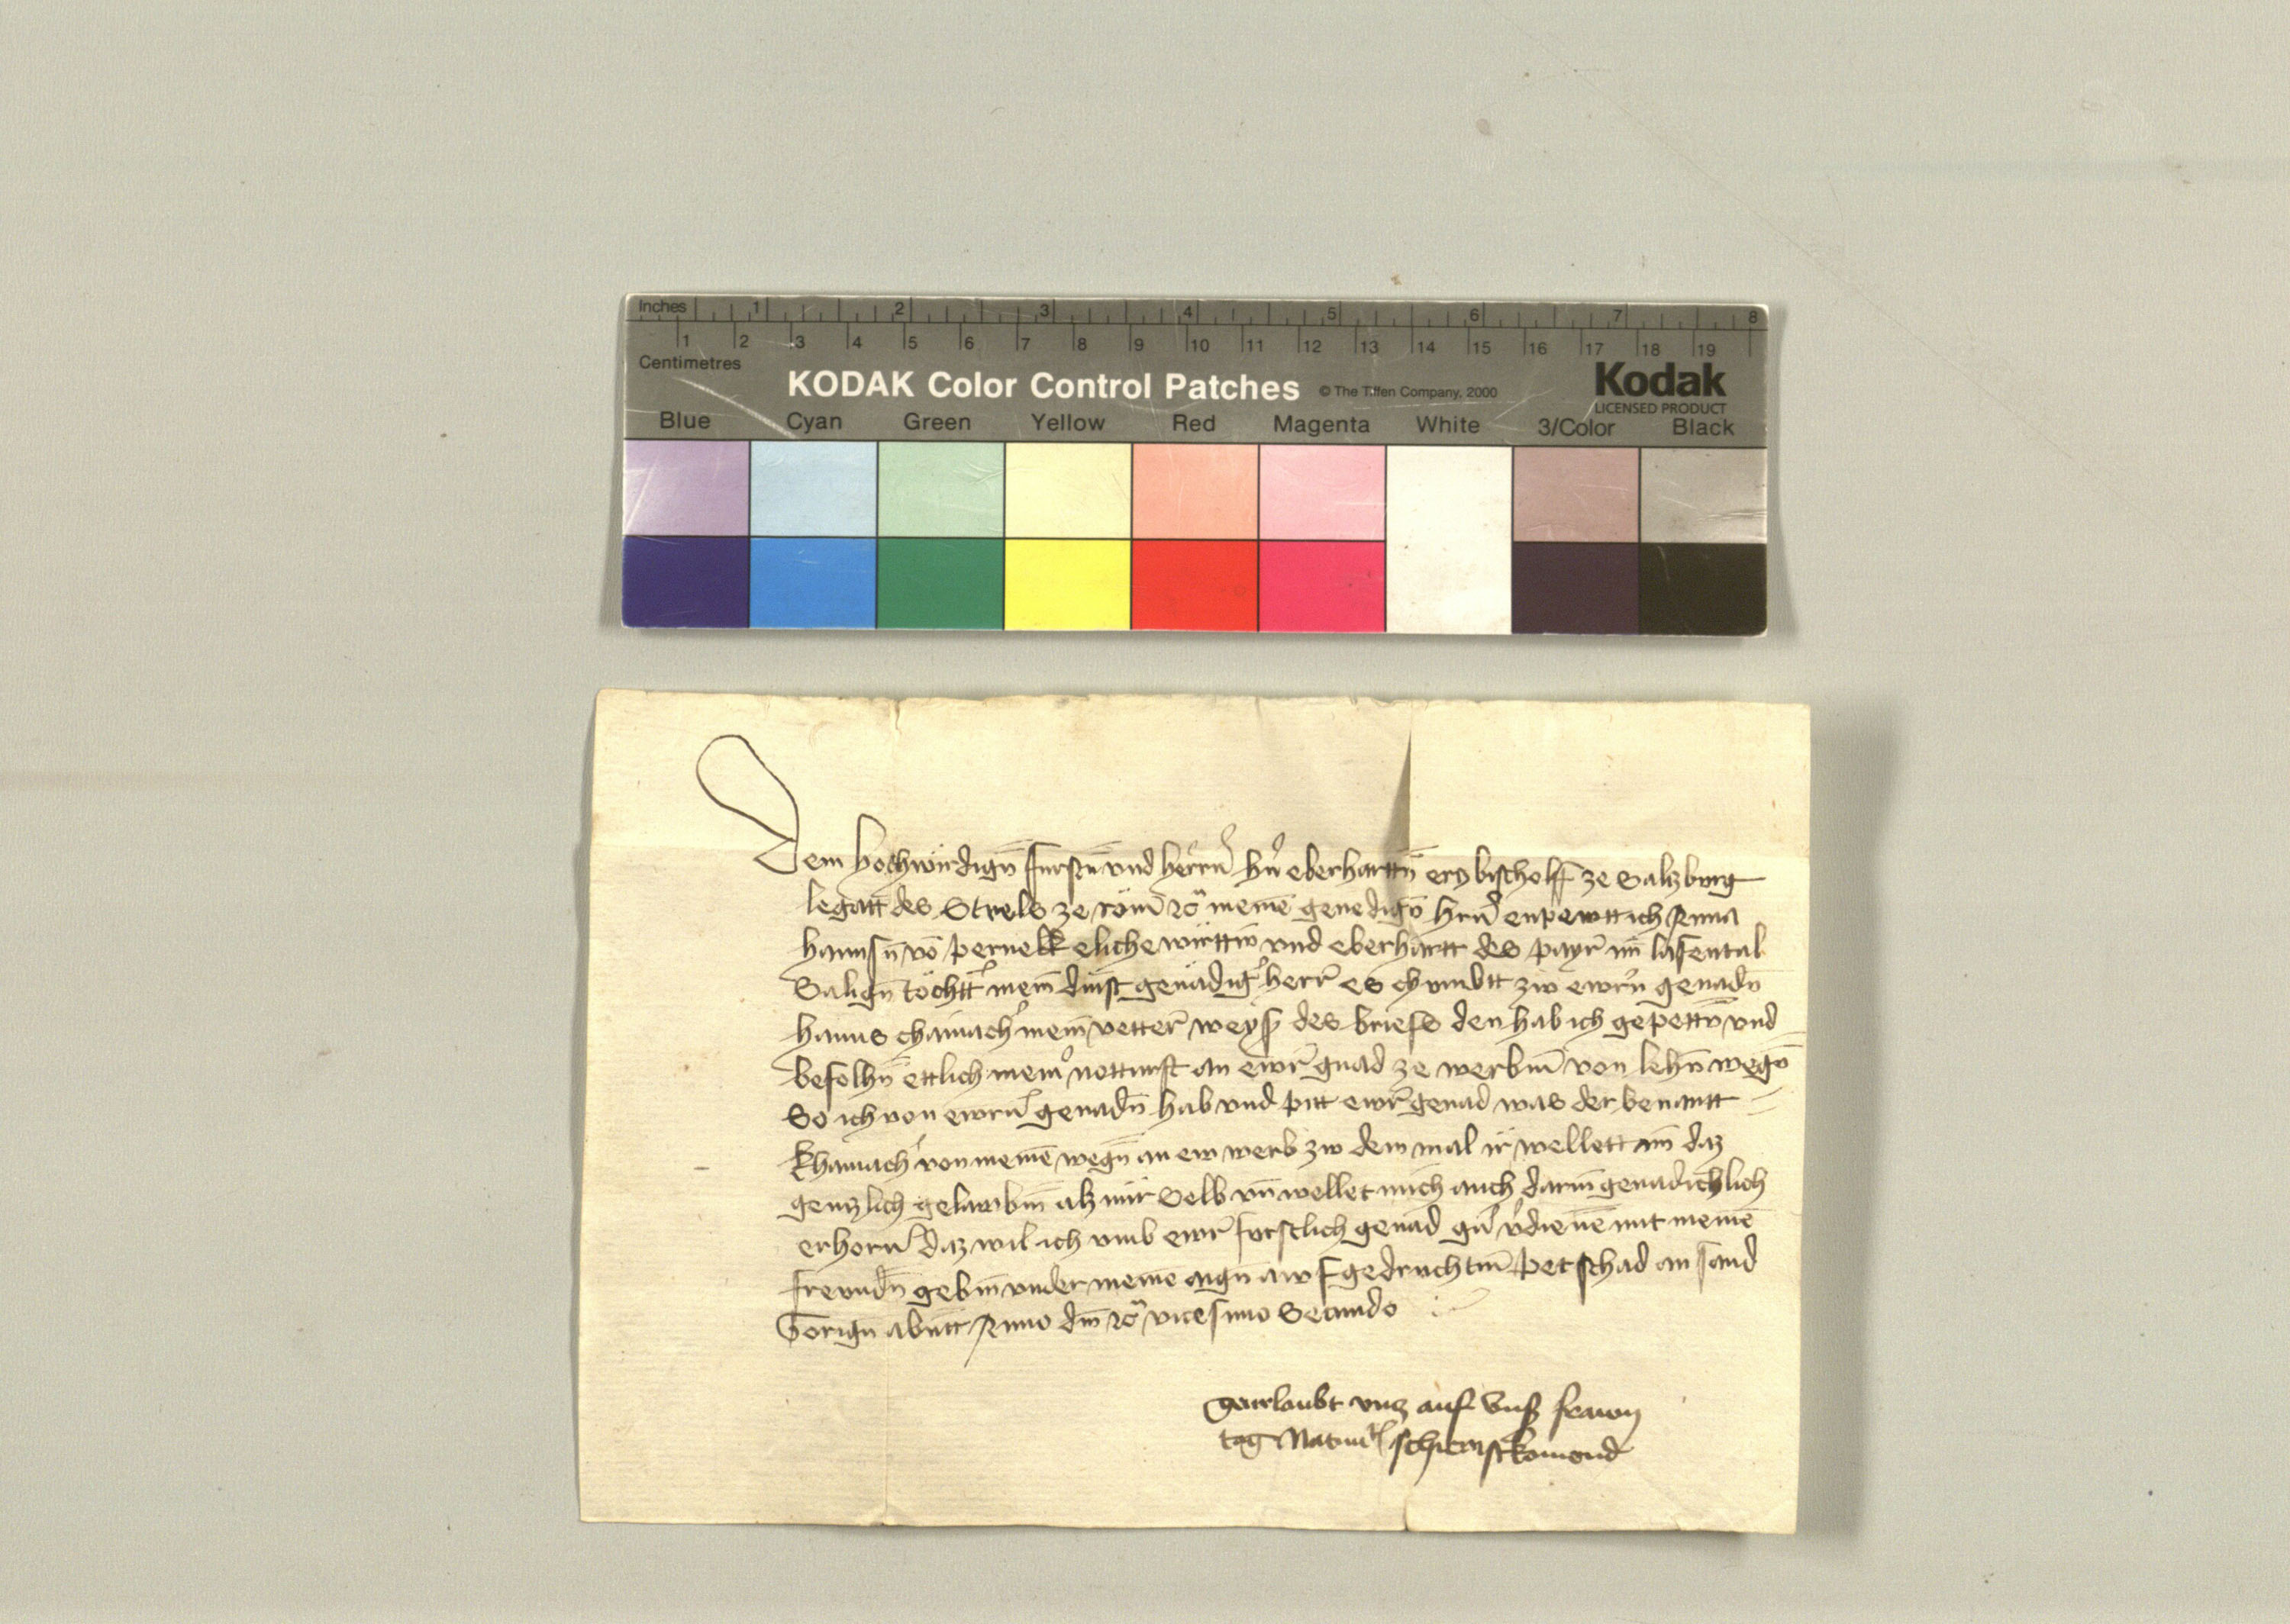 Inches 1 2 3 4 5 6 7 8
1 2 3 4 5 6 7 8 9 10 11 12 13 14 15 16 17 18 19
Centimetres
KODAK Color Control Patches © The Tiffen Company, 2000 Kodak
LICENSED PRODUCT
Blue Cyan Green Yellow Red Magenta White 3/Color Black
Dem hochwirdign̄ furstn̄ vnd herrn̄ hn̄ eberharttn̄ erczbischolff ze Salzburg
legatt des Stuels ze röm rc̄ meinē genedigō hrn̄ enpewtt ich Anna
hannsn̄ vō pernekk eliche wirttin̄ vnd eberhartt des payr̄ im̄ lafental
Salign̄ töchtt mein̄ dinst genädig herr̄ es chumbtt zw ewrn̄ genadn̄
hanns chainach mein̄ vetter̄ weyſ des briefs den hab ich gepettn̄ vnd
befolhn̄ ettlich mein notturft an ewr̄ gnad ze werbm̄ von lehn̄ wegn̄
So ich von ewrn̄ genadn̄ hab vnd pitt ewr̄ genad was der benantt
khainach von meinē wegn̄ an ew werb zw dem mal ir wellett im̄ daz
genczlich gelawbm̄ alz mir Selb vn̄ wellet mich auch darin̄ genadichlich
erhorn̄ daz wil ich vmb ewr̄ furstlich genad gn̄ v̄dienē mit meinē
frewndn̄ gebm̄ vnder meinē aign̄ awfgedruchtm̄ petschad an sand
Gorign̄ abntt Anno dm̄ rc̄ vicesimo Secundo
geurlaubt vncz auf vnſ frawn
tag Natiui schieristkomend